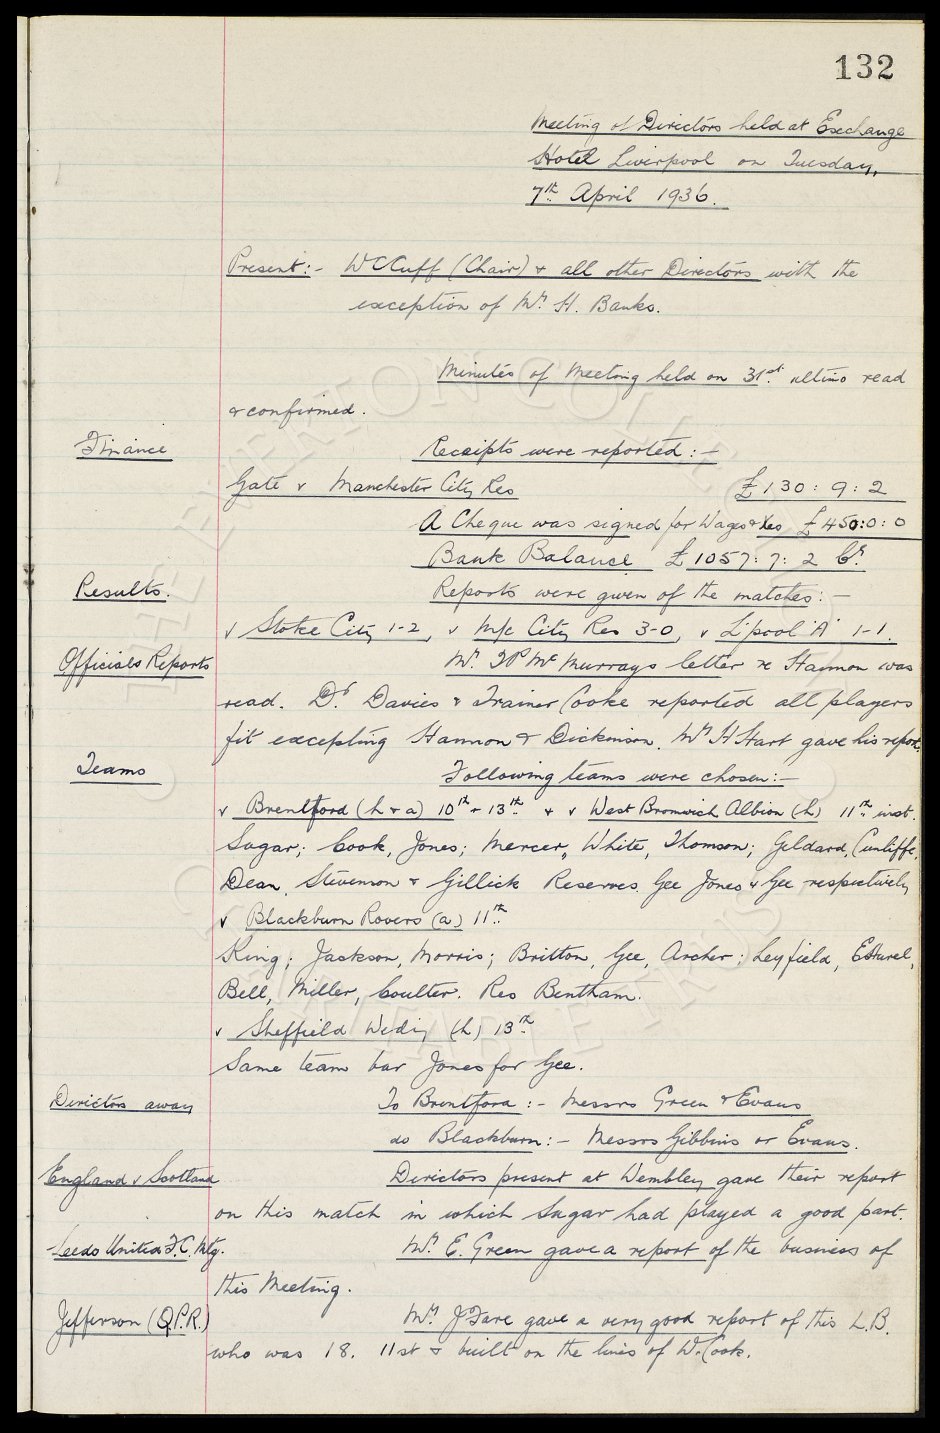 132
Meeting of Directors held at Exchange
Hotel Liverpool on Tuesday,
7th April 1936.
Present:- W C Cuff (Chair) & all other Directors with the
exception of Mr. H. Banks.
Minutes of Meeting held on 31st. ultimo read
& confirmed.
Finance
Receipts were reported:-
Gate v Manchester City Res £130:9:2
A Cheque was signed for Wages & £450:0:0
Bank Balance £1057:7:2 Cr.
Results.
Reports were given of the matches:-
v Stoke City 1-2, v M/c City Res 3-0, v L'pool "A" 1-1.
Officials Reports
Mr. T P McMurrays letter re Hannon was
read. Dr. Davies & Trainer Cooke reported all players
fit excepting Hannon & Dickinson. Mr H Hart gave his report.
Teams
Following teams were chosen:-
v Brentford (h & a) 10th & 13th. & v West Bromwich Albion (h) 11th. inst.
Sagar; Cook, Jones; Mercer, White, Thomson; Geldard, Cunliffe,
Dean, Stevenson & Gillick Reserves Gee Jones & Gee respectively
v Blackburn Rovers (a) 11th.
King; Jackson, Morris; Britton, Gee, Archer; Leyfield, E Hurel,
Bell, Miller, Coulter. Res Bentham.
v Sheffield Wed'y (h) 13th.
Same team bar Jones for Gee.
Directors away
To Brentford:- Messrs Green & Evans
do Blackburn:- Messrs Gibbins or Evans.
England v Scotland
Directors present at Wembley gave their report
on this match in which Sagar had played a good part.
Leeds United F.C. Mtg.
Mr. E. Green gave a report of the business of
this Meeting.
Jefferson (Q.P.R.)
Mr. J Fare gave a very good report of this L.B.
who was 18. 11st & built on the lines of W. Cook.
THE EVERTON COLLECTION
CHARITABLE TRUST